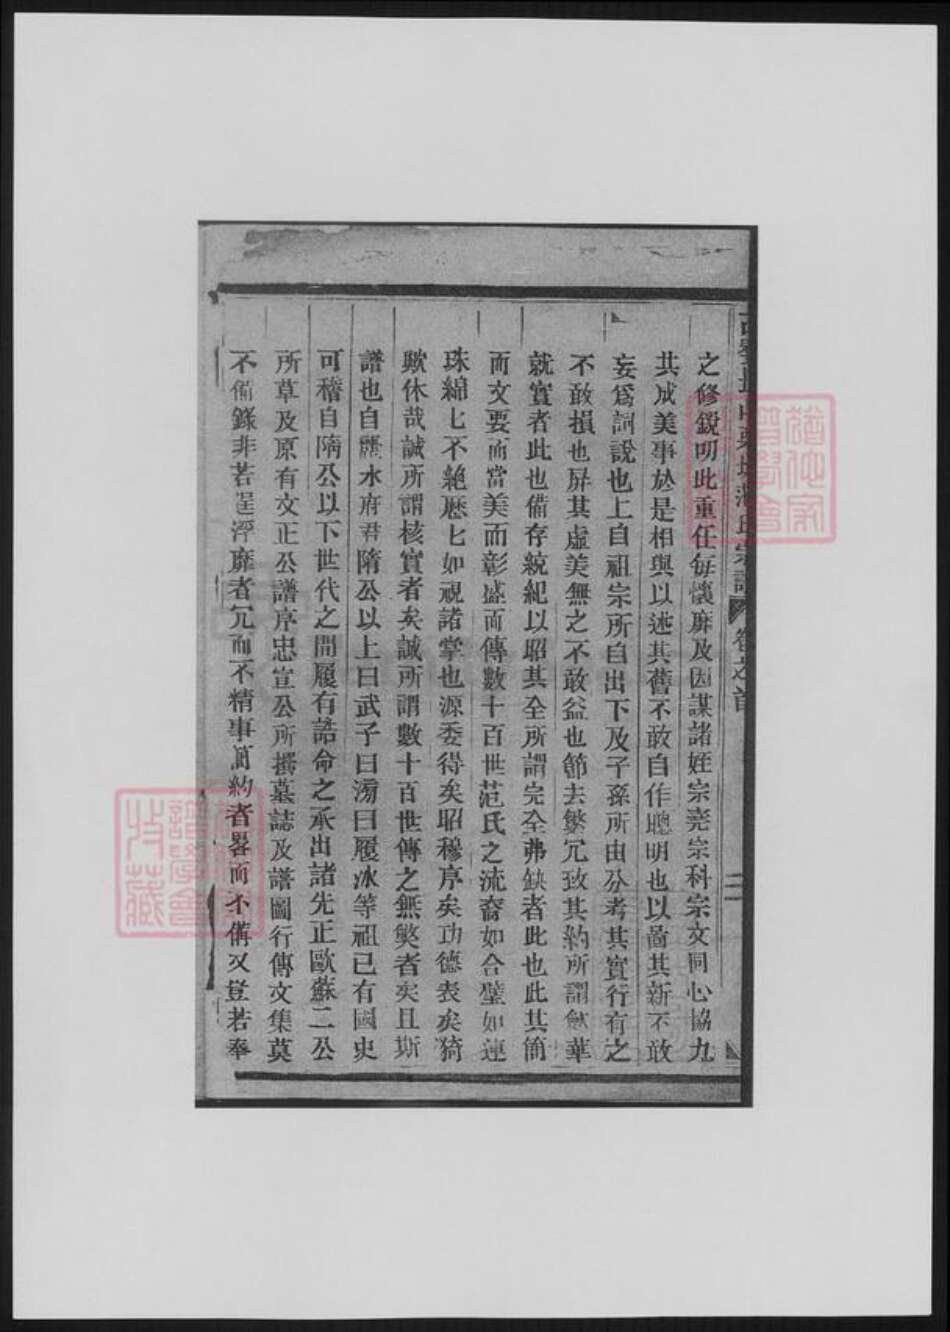 氏宗譜 卷之首
之修銳明此重任每懷靡及因謀諸姪宗堯宗科宗文同心協力
共成美事於是相與以述其舊不敢自作聰明也以啚其新不敢
妄爲訓說也上自祖宗所自出下及子孫所由分考其實行有之
不敢損也屏其虛美無之不敢益也節去繁冗致其約所謂斂華
就實者此也備存統紀以昭其全所謂完全弗缺者此也此其簡
而文要而當美而彰盛而傳數十百世范氏之流裔如合璧如連
珠綿匕不絶歷匕如視諸掌也源委得矣昭穆序矣功德表矣猗
歟休哉誠所謂核實者矣誠所謂數十百世傳之無斁者矣且斯
譜也自麗水府君隋公以上曰武子曰滂曰履冰等祖已有國史
可稽自隋公以下世代之間履有誥命之承出諸先正歐蘇二公
所草及原有文正公譜序忠宣公所撰墓誌及譜圖行傳文集莫
不備錄非若逞浮靡者冗而不精事簡約者畧而不備又豈若奉
譜學會
收藏